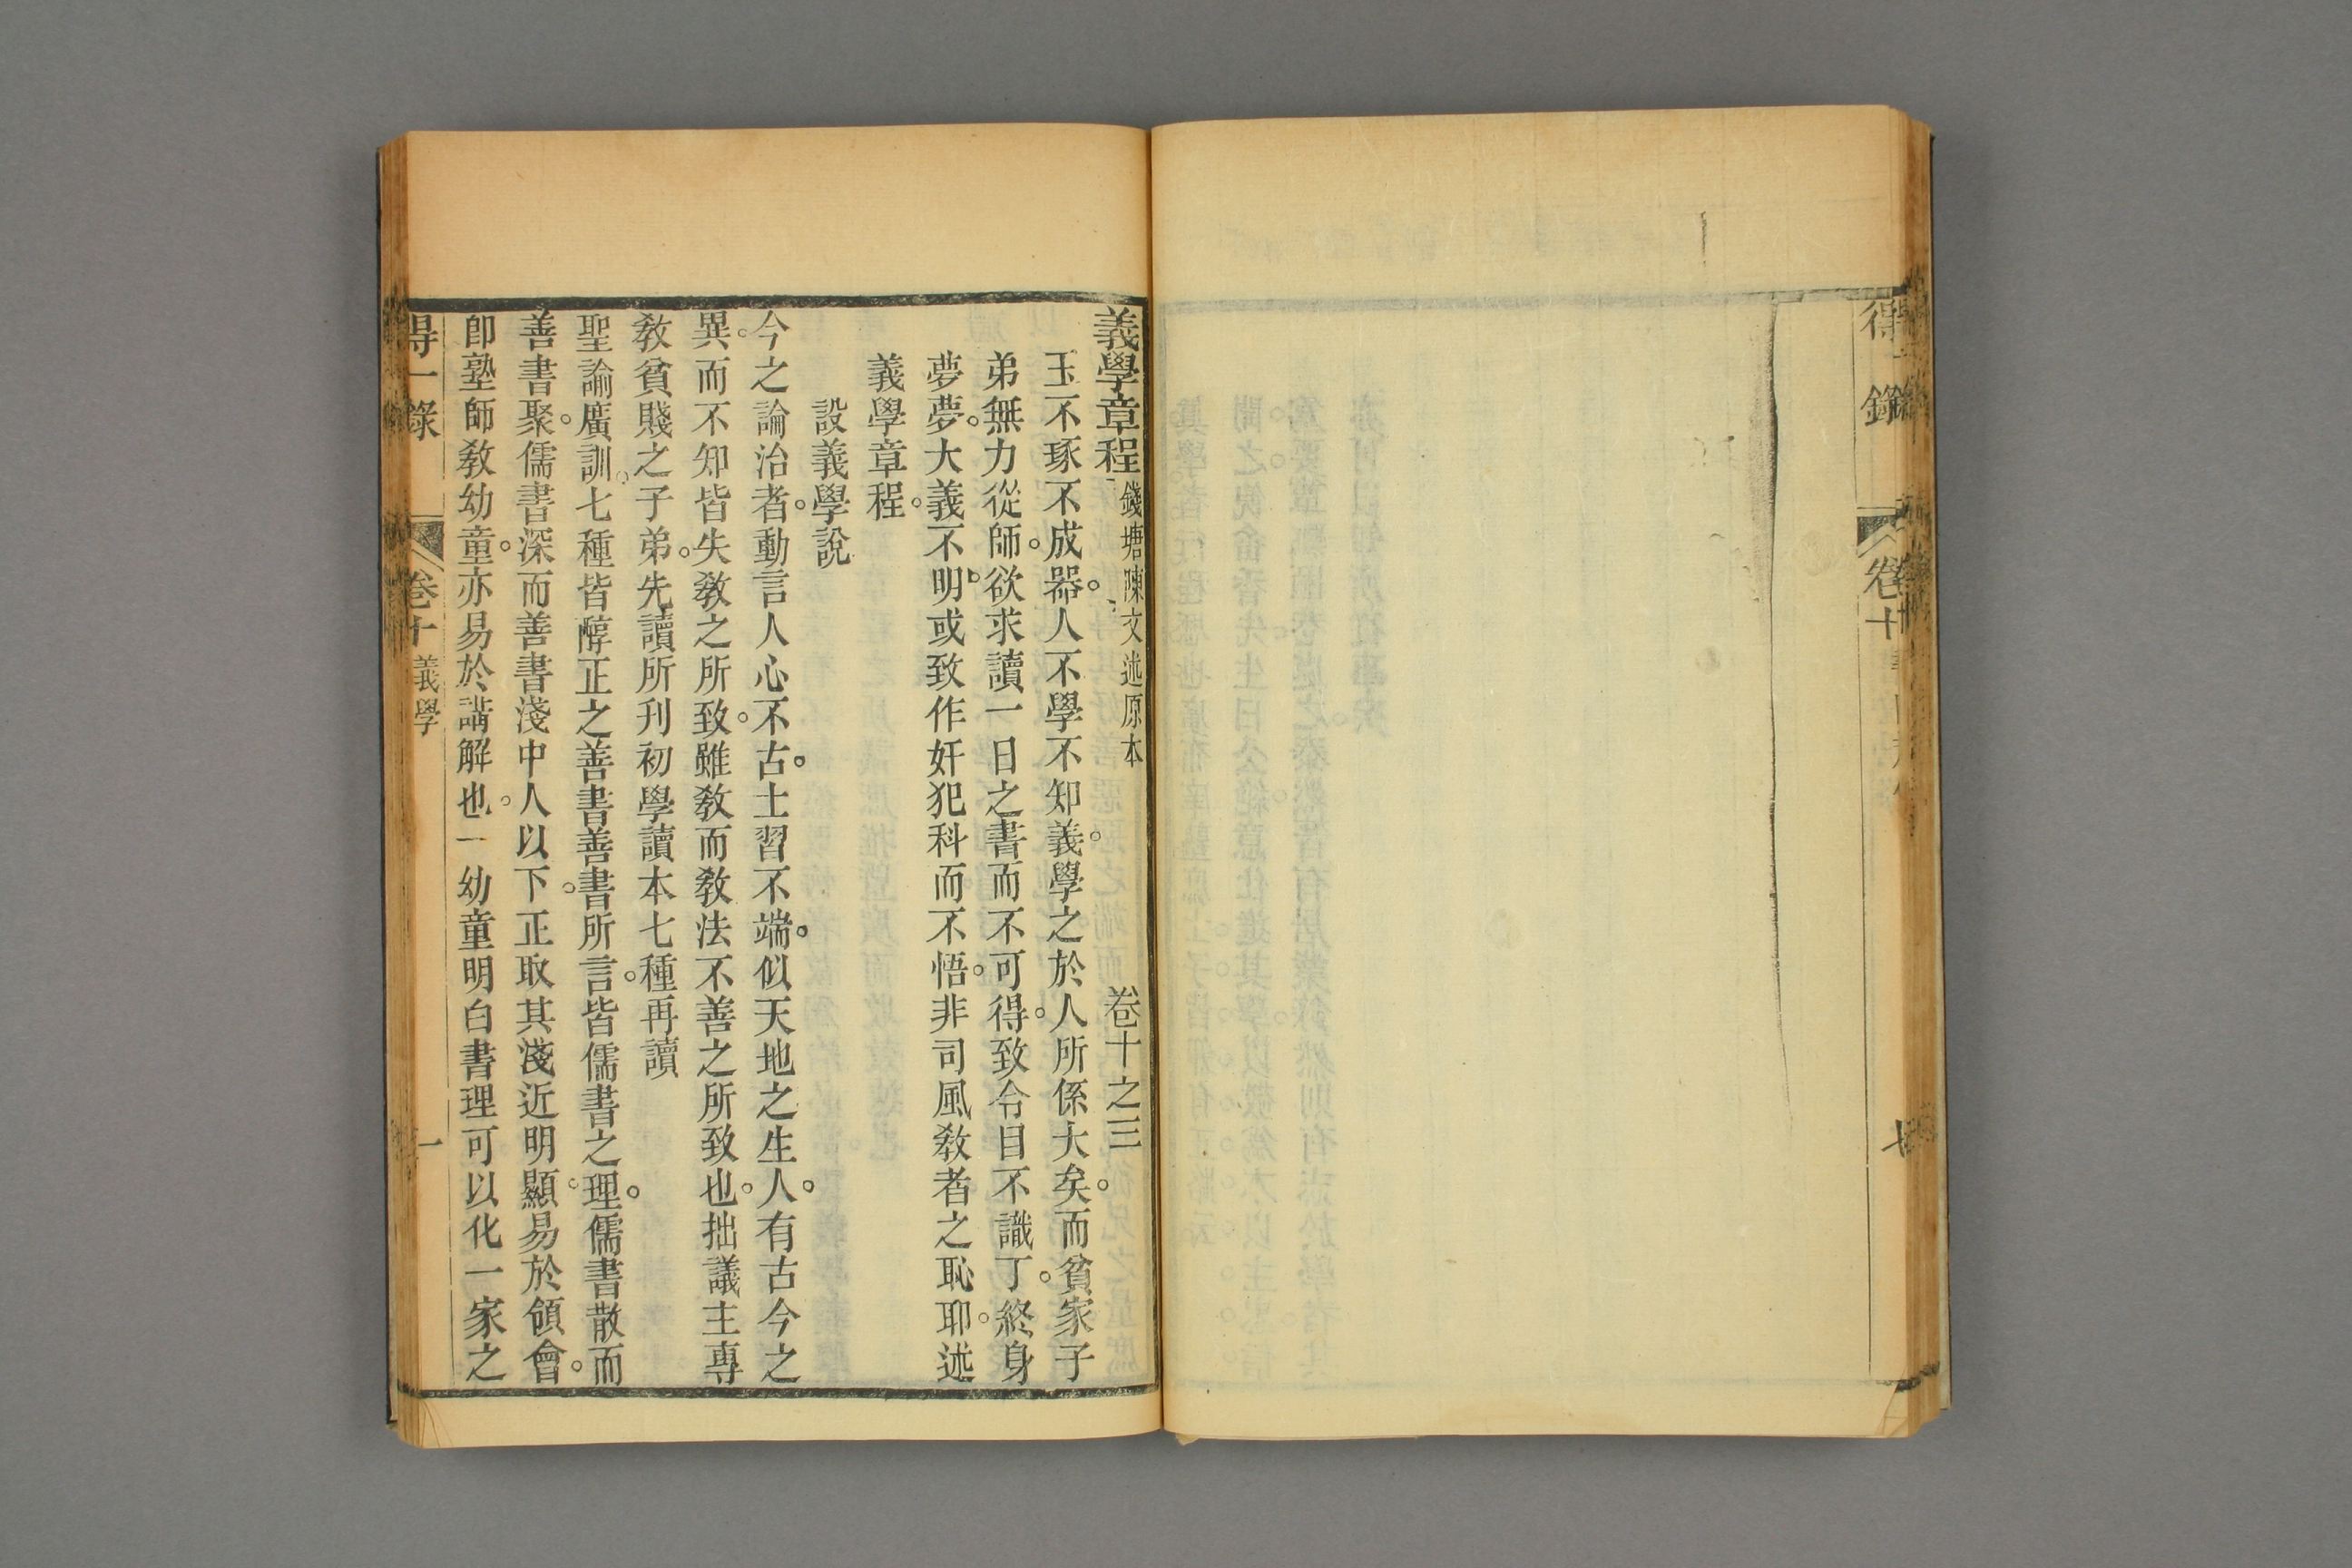 得一錄 卷十 七
義學章程 錢塘陳文述原本 卷十之三
玉不琢不成器。人不學不知義。學之於人所係大矣。而貧家子
弟無力從師。欲求讀一日之書而不可得。致令目不識丁。終身
夢夢。大義不明。或致作奸犯科而不悟。非司風教者之恥耶。述
義學章程。
設義學說
今之論治者。動言人心不古。士習不端。似天地之生人。有古今之
異。而不知皆失教之所致。雖教而教法不善之所致也。拙議主專
教貧賤之子弟。先讀所刊初學讀本七種再讀
聖諭廣訓。七種皆醇正之善書善書所言。皆儒書之理。儒書散而
善書聚。儒書深而善書淺中人以下。正取其淺近明顯。易於領會。
卽塾師教幼童。亦易於講解也。一幼童明白書理可以化一家之
得一錄 卷十 義學 一